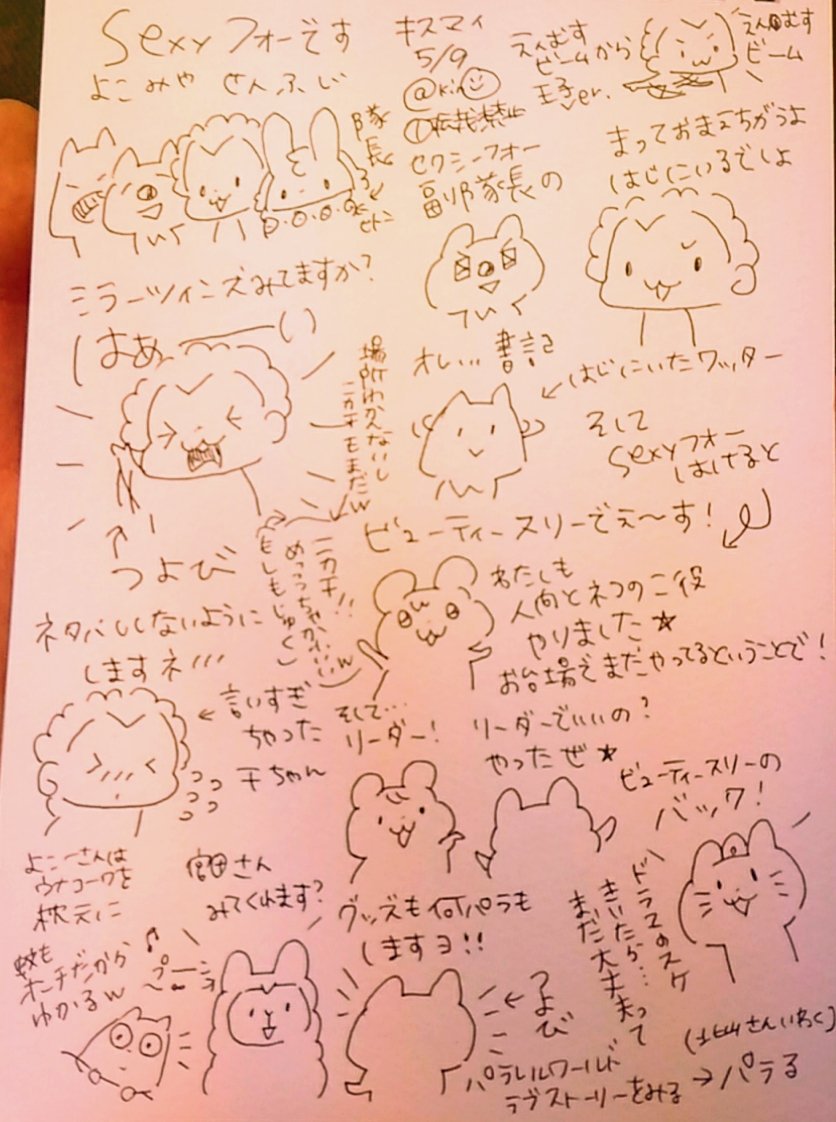 Sexyフォーです
よこみや せんふじ
キスマイ
5/9
@kin
転載禁止
えんむす
ビームから
王子ver.
えんむす
ビーム
隊
長
セクシーフォー
副隊長の
まっておまえちがうよ
はじにいるでしょ
ミラーツインズみてますか?
はあーーい
場所わかんないし
ニカチもまだw
オレ… 書記
←はじにいたワッター
そして
Sexyフォー
はけると
ビューティースリーでぇ〜す!
つよび
ニカチ!!
めっっちゃかわいいw
もしもじゅく
わたしも
人間とネコの二役
やりました★
お台場でまだやってるということで!
ネタバレしないように
しますネ
←言いすぎ
ちゃった
千ちゃん
そして…
リーダー!
リーダーでいいの?
やったぜ★
ビューティースリーの
バック!
よこーさんは
ウナコーワを
枕元に
宮田さん
みてくれます?
グッズも何パラも
しますヨ!!
ドラマのスケ
きいたら…
まだ大丈夫って
蚊も
オンチだから
わかるw
プーン♪
←つよび
パラレルワールド
ラブストーリーをみる→パラる
(北山さんいわく)